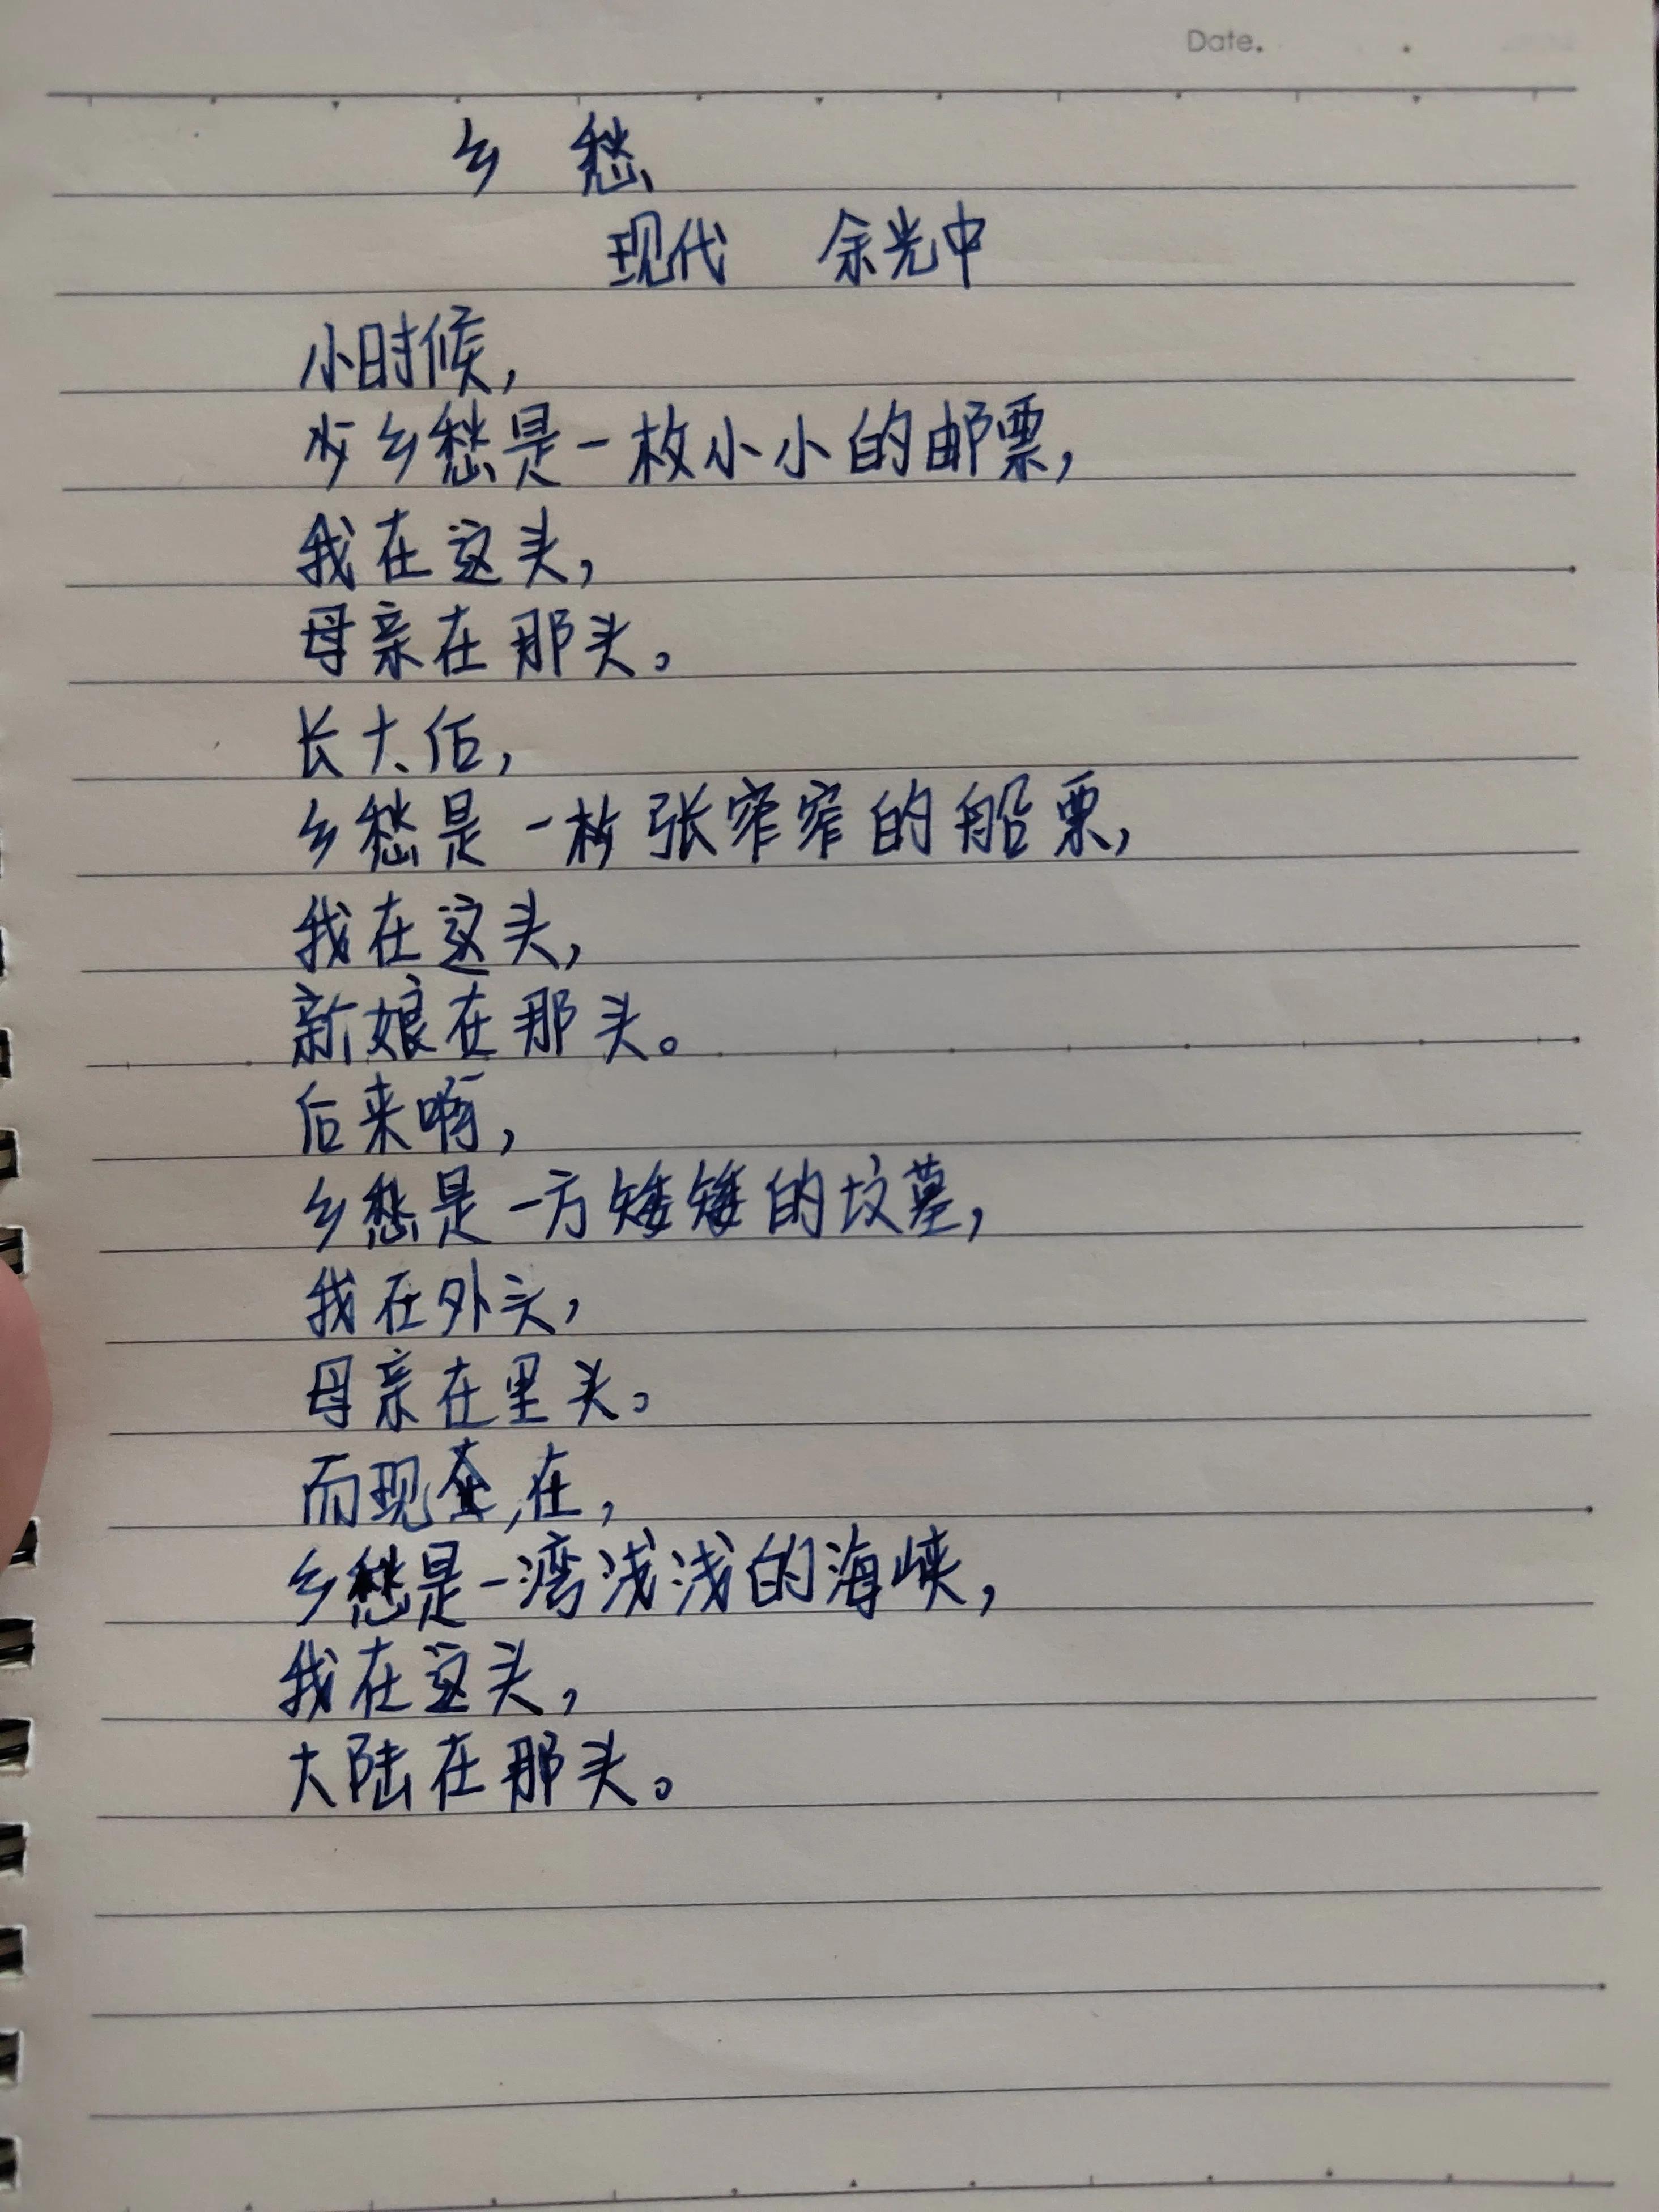 Date.
乡 愁
现代 余光中
小时候,
乡愁是一枚小小的邮票,
我在这头,
母亲在那头。
长大后,
乡愁是一张窄窄的船票,
我在这头,
新娘在那头。
后来啊,
乡愁是一方矮矮的坟墓,
我在外头,
母亲在里头。
而现在,
乡愁是一湾浅浅的海峡,
我在这头,
大陆在那头。